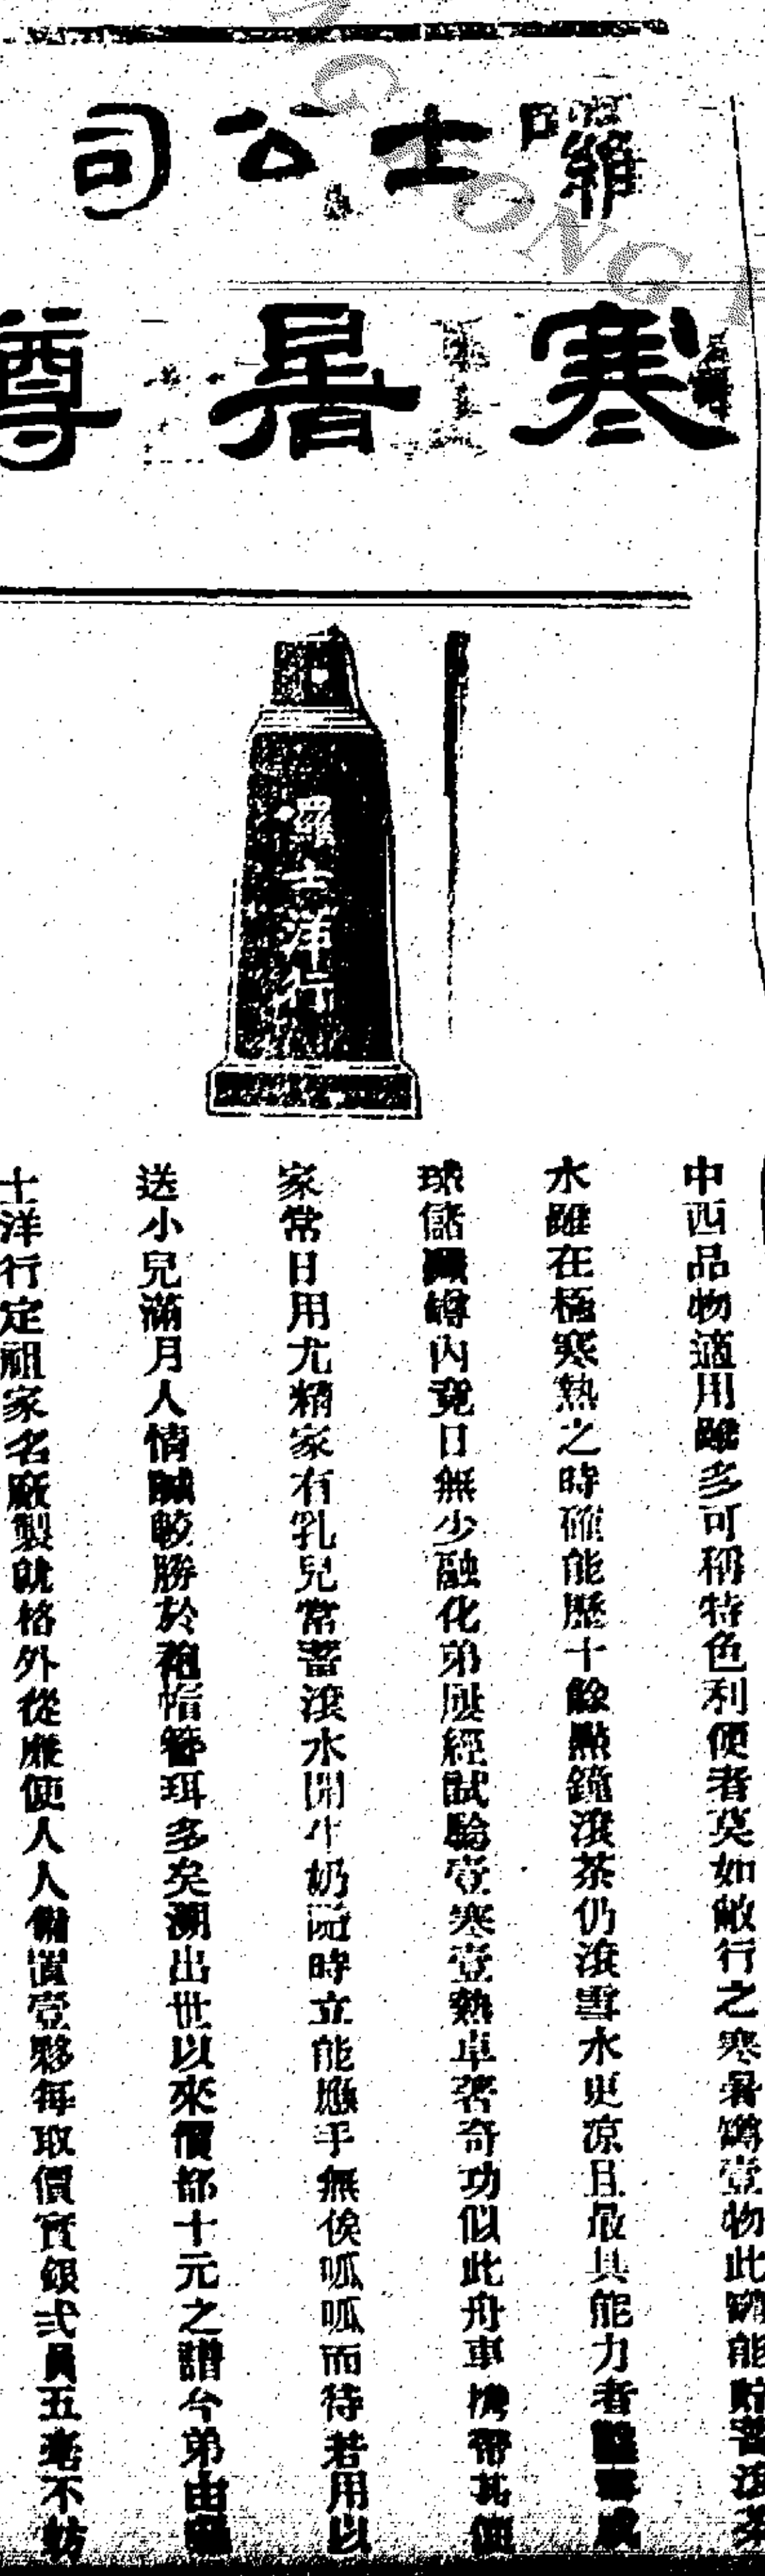 囉士公司
寒暑尊
羅士洋行
中西品物適用雖多可稱特色利便者莫如敝行之寒暑罇壹物此罇能貯蓄滾茶
水雖在極寒熱之時確能歷十餘點鐘滾茶仍滾雪水更凉且最具能力者
球儲罇內竟日無少融化弟屢經試驗壹寒壹熱卓著奇功似此舟車攜帶甚便
家常日用尤精家有乳兒常蓄滾水開牛奶隨時立能應手無俟呱呱而待若用以
送小兒滿月人情誠較勝於袍帽簪珥多矣溯出世以來價都十元之譜今弟由囉
士洋行定祖家名廠製就格外從廉使人人備置壹夥每取價實銀弍員五毫不妨